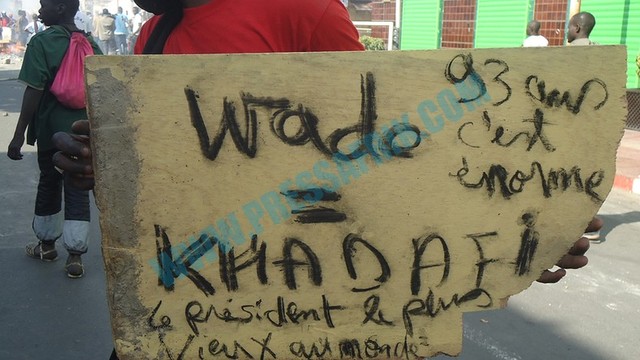 Wade
=
KHADAFI
93 ans
c'est
énorme
Le président le plus
Vieux au monde
WWW.PRESSAFRIK.COM